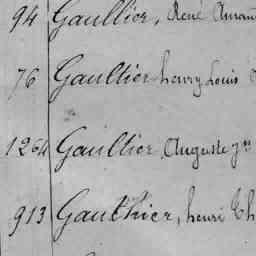 94 Gaullier, René Amand
76 Gaullier henry Louis
1264 Gaullier Auguste
913 Gaulhier, henri Th